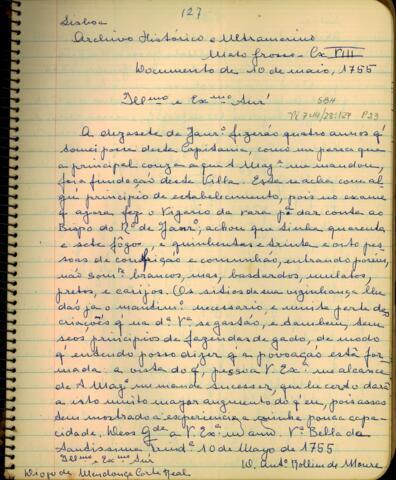 127
Lisboa
Archivo Histórico e Ultramarino
Mato Grosso - Cx VIII
Documento de 10 de maio, 1755
Illmo e Exmo Snr
A dezasete de Janro fizerão quatro annos q'
tomei posse desta Capitania, como me pareça que
a principal couza a que S. Magde me mandou,
foi a fundação desta Villa. Esta se acha com al
gu principio de estabelecimento, pois no exame
q' agora fez o Vigario da vara pa dar conta ao
Bispo do Ro de Janro, achou que tinha quarenta
e sete fógos, e quinhentas e trinta e oito pes
soas de confição e comunhão, entrando porém,
não somte brancos, mas, bastardos, mulatos,
pretos, e carijos. Os sitios da sua vizinhança lhe
dão já o mantimto necessario, e muita parte das
criações q' na da Va se gastão, e tambem tem
seos principios de fazendas de gado, de modo
q' entendo posso dizer q' a povoação está for
mada: a vista do q', peço a V. Exa me alcance
de S. Magde me mande sucessor, que he certo dará
a isto muito mayor augmento do q' eu, pois assas
tem mostrado a experiencia a minha pouca capa
cidade. Deos Gde a V. Exa m. anno. Va Bella da
Santissima Trindde 10 de Mayo de 1755
Illmo e Exmo Snr
Diogo de Mendonça Corte Real
D. Anto Rollim de Moura